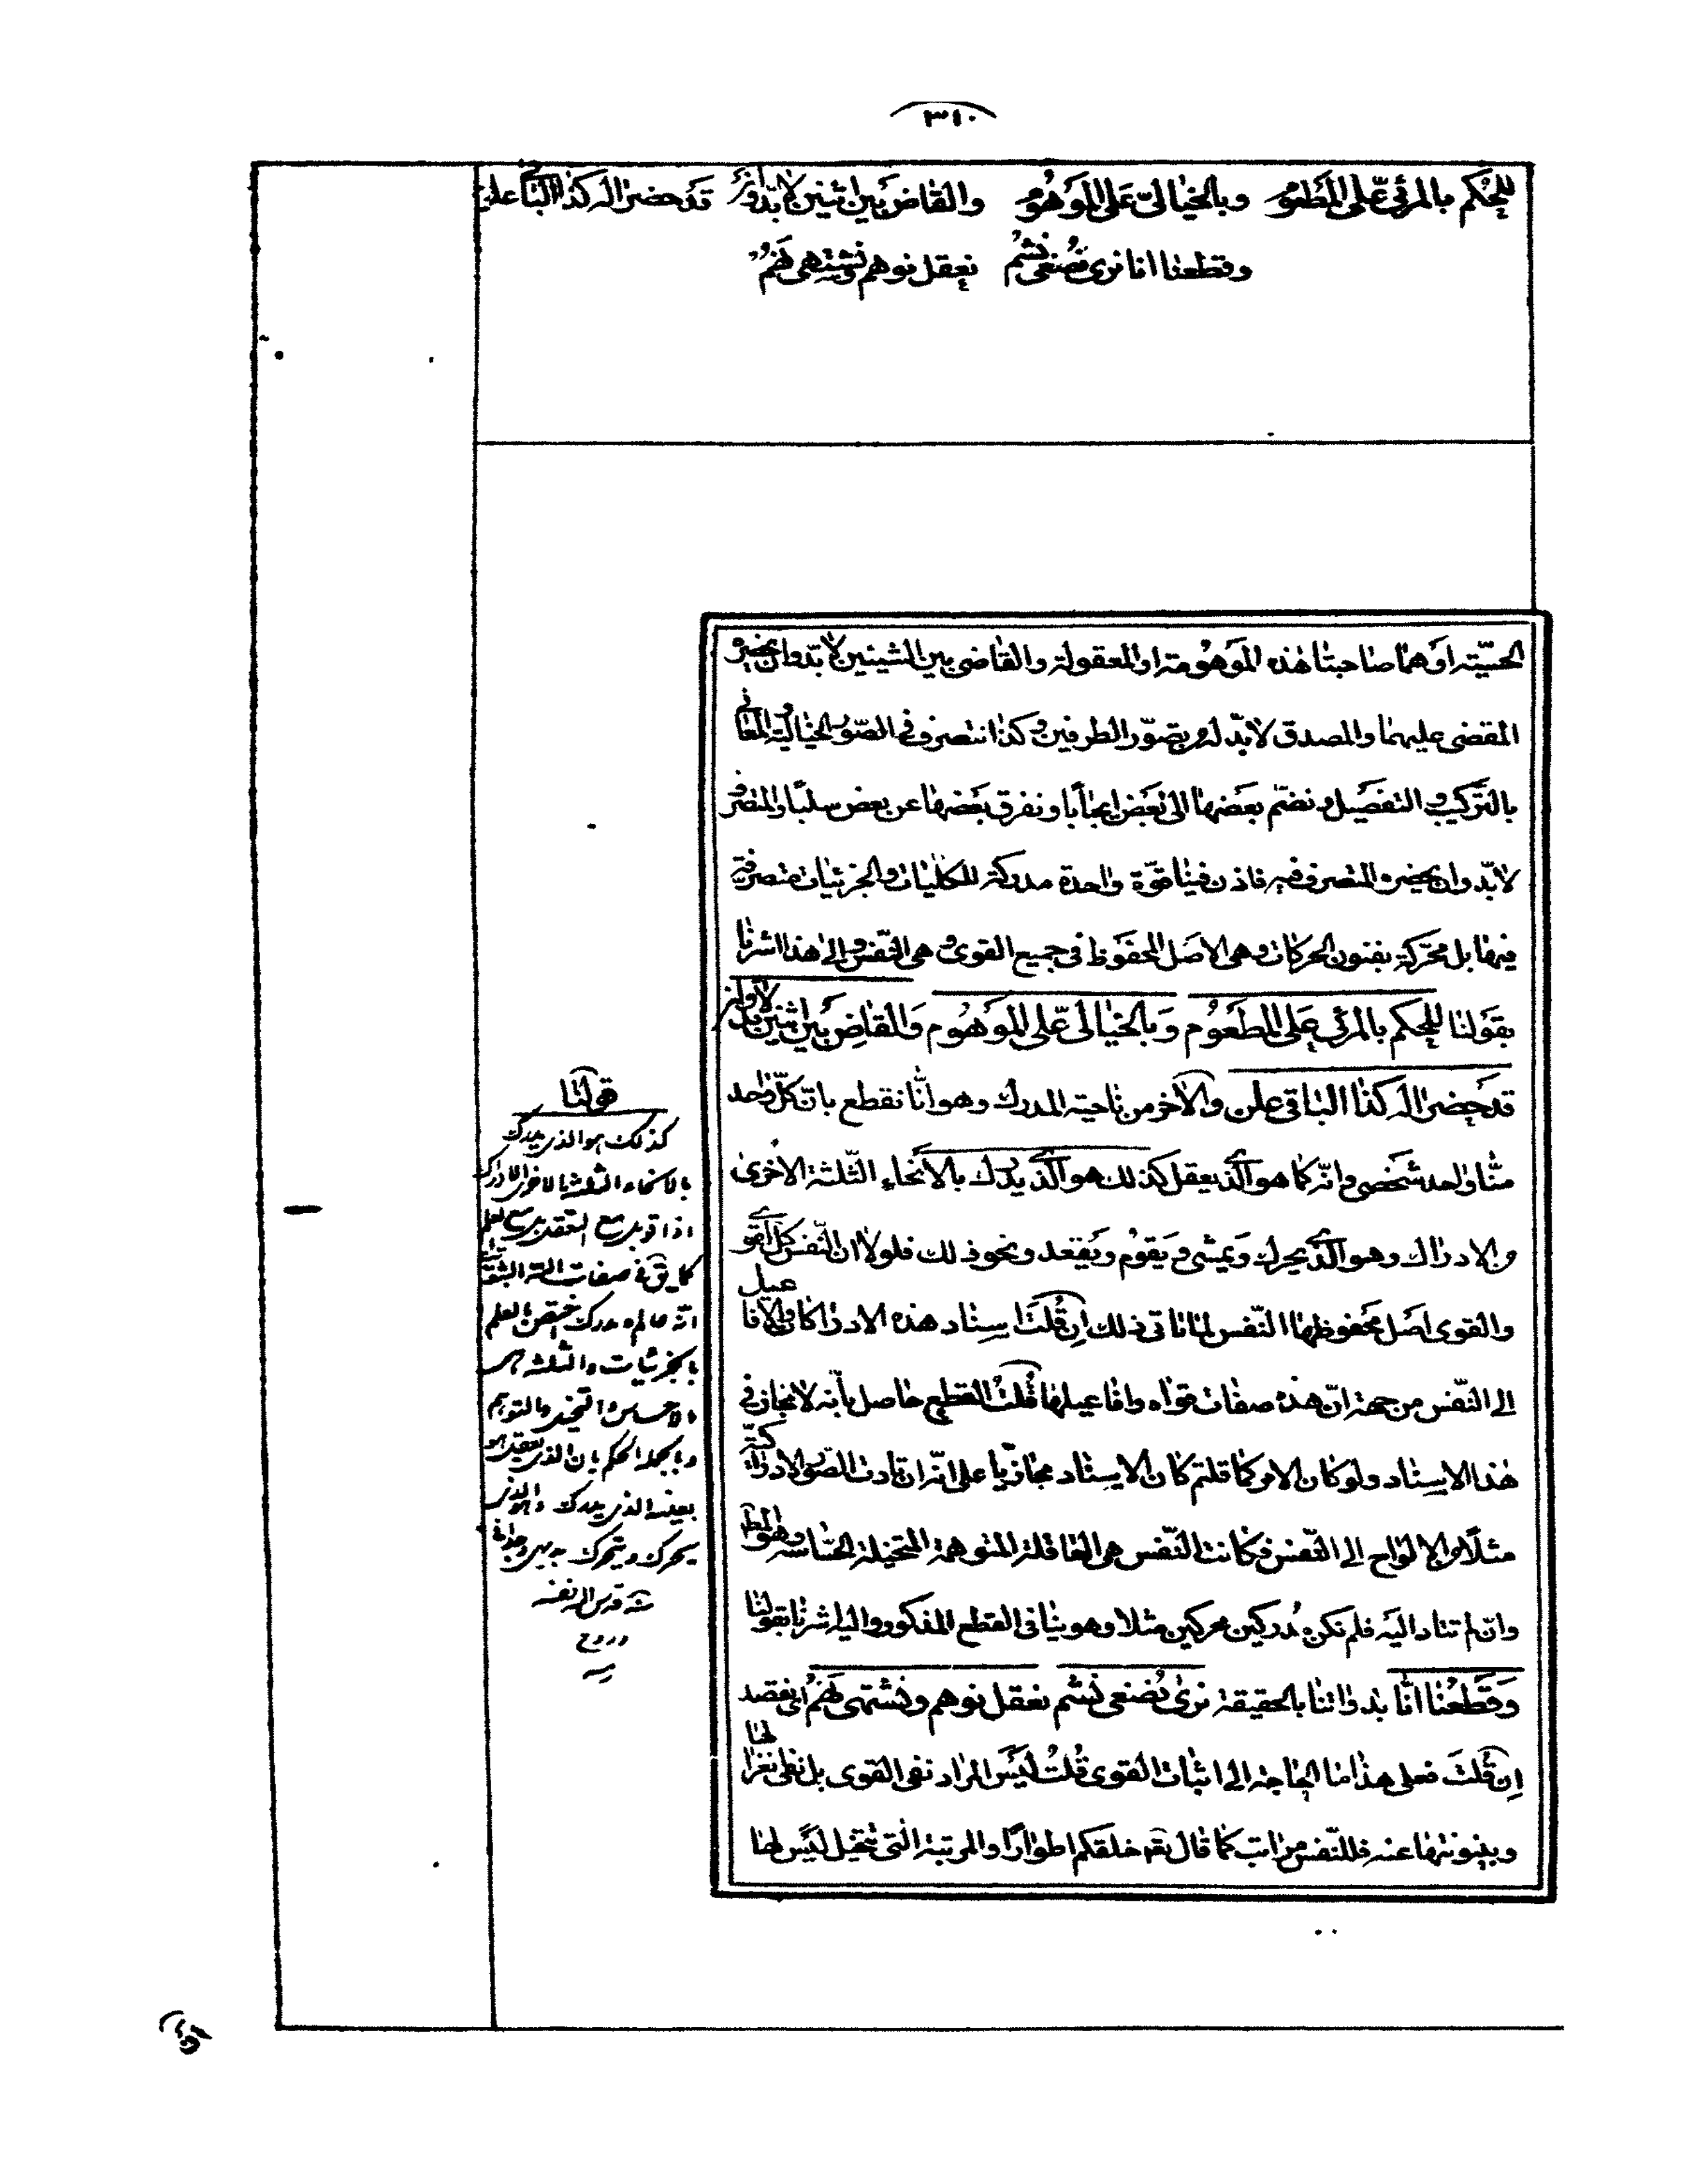 ٣١٠
للحكم بالمرئيّ على المطعوم وبالخياليّ على الموهوم والقاض بين اثنين لا بدّ وان قد حضرا له كذا الباقي علن
وقطعنا انا نرى نصغى نشم نعقل نوهم ونشتهى نهم
الحسّيّة او هما صاحبتا هذه الموهومة او المعقولة والقاضى بين الشيئين لا بدّ وان يحضره
المقضى عليهما والمصدق لا بدّ له من تصوّر الطرفين وكذا نتصرف فى الصّور الخياليّة والمعانى
بالتّركيب والتفصيل ونضمّ بعضها الى بعض ايجابا ونفرق بعضها عن بعض سلبا والمتصرف
لا بدّ وان يحضره المتصرف فيه فاذن فينا قوّة واحدة مدركة للكليّات والجزئيّات متصرفة
فيها بل محرّكة بفنون الحركات وهى الاصل المحفوظ فى جميع القوى وهى النّفس والى هذا اشرنا
بقولنا للحكم بالمرئى على المطعوم وبالخيالىّ على الموهوم والقاض بين اثنين لا بدّ وان
قد حضرا له كذا الباقى علن والآخر من ناحية المدرك وهو انّا نقطع بانّ كلّ واحد
منّا واحد شخصى وانّه كما هو الّذى يعقل كذلك هو الّذى يدرك بالانحاء الثّلثة الاخرى
من الادراك وهو الّذى يحرك ويمشى ويقوم ويقعد ونحو ذلك فلولا ان النّفس كلّ القوى
والقوى اصل محفوظها النّفس لما تاتى ذلك ان قلت اسناد هذه الادراكات والافاعيل
الى النّفس من جهة انّ هذه صفات قواه وافاعيلها قلت القطع حاصل بأنّه لا مجاز فى
هذا الاسناد ولو كان الامر كما قلتم كان الاسناد مجازيّا على انّه ان تادت الصّور الادراكيّة
مثلا من الالواح الى النّفس فكانت النّفس هى العاقلة المتوهمة المتخيلة الحسّاسة وهو المط
وان لم تتاد اليه فلم تكن مدركين محركين مثلا وهو ينافى القطع المذكور واليه اشرنا بقولنا
وقطعنا انّا بذواتنا بالحقيقة نرى نصغى نشم نعقل نوهم ونشتهى نهم اى نقصد
ان قلت فعلى هذا ما الحاجة الى اثبات القوى قلت ليس المراد نفى القوى بل نفى تغرّبها
وبينونتها عنه فللنّفس مراتب كما قال تع خلقكم اطوارا والمرتبة الّتى تتخيل ليس لها
قولنا
كذلك هو الذى يدرك
بالانحاء الثلثة الاخرى الادراك
اذا قوبل مع التعقل
كما يق فى صفات الله
انه عالم مدرك يختص العلم
بالجزئيات والثلثة هى
الاحساس والتخيل والتوهم
وبالجملة الحكم بان الذى يعقل هو
بعينه الذى يدرك والذى
يحرك ويتحرك
منه قدس الله نفسه
وروح